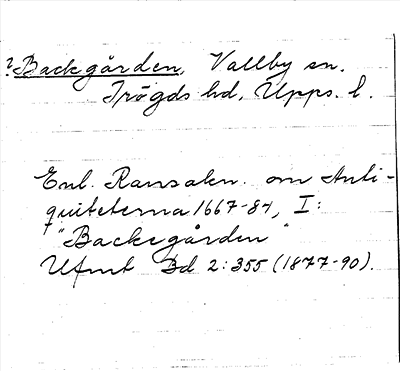 ? Backgården, Vallby sn.
Trögds hd, Upps. l.
Enl. Ransakn. om Anti-
quiteterna 1667-84, I:
"Backegården"
Ufmt Bd 2:355 (1877-90).